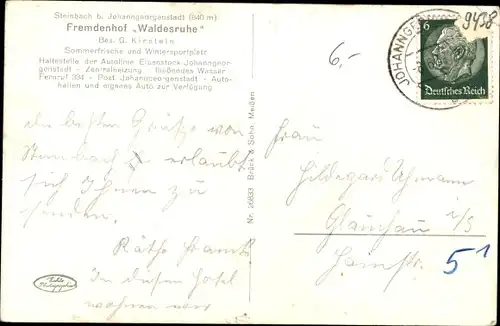 Steinbach b. Johanngeorgenstadt (840 m)
Fremdenhof „Waldesruhe"
Bes. G. Kirstein
Sommerfrische und Wintersportplatz
Haltestelle der Autolinie Eibenstock-Johanngeor-
genstadt - Zentralheizung - fließendes Wasser
Fernruf 334 - Post Johanngeorgenstadt - Auto-
hallen und eigenes Auto zur Verfügung
6,-
9438
JOHANNGE
6
Deutsches Reich
Die besten Grüße von
Steinbach erlaubt
sich Ihnen zu
senden.
Käthe
In diesem Hotel
wohnen wir
Nr. 26833 Brück & Sohn, Meißen
Frau
Hildegard
Glauchau i/S
51
Echte
Photographie